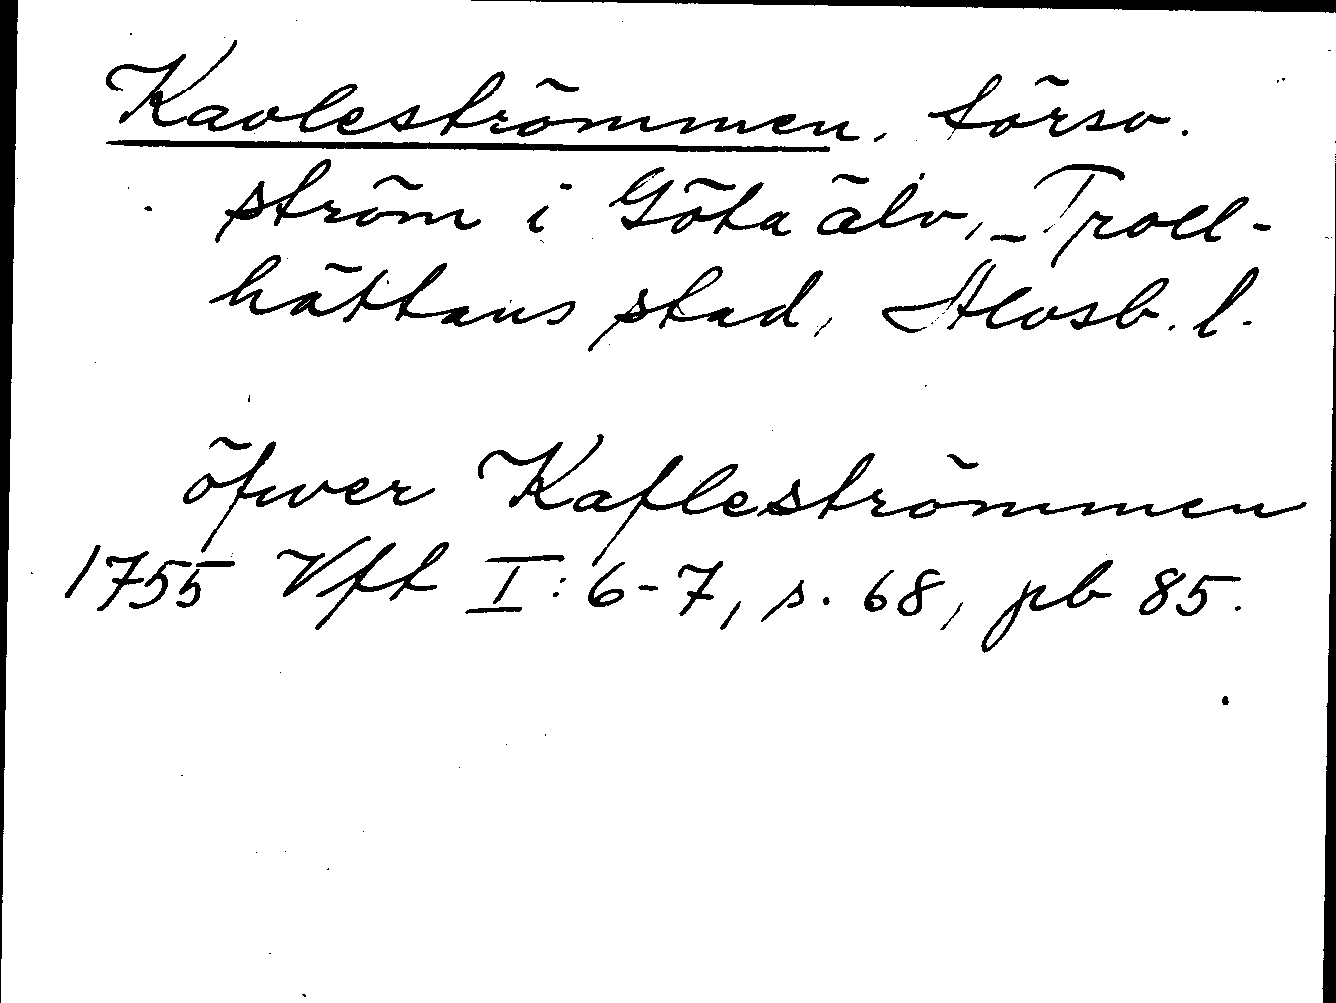 Kavleströmmen, försv.
ström i Göta älv, Troll-
hättans stad, Älvsb. l.
öfwer Kafleströmmen
1755 Vft I: 6-7, s. 68, pb 85.